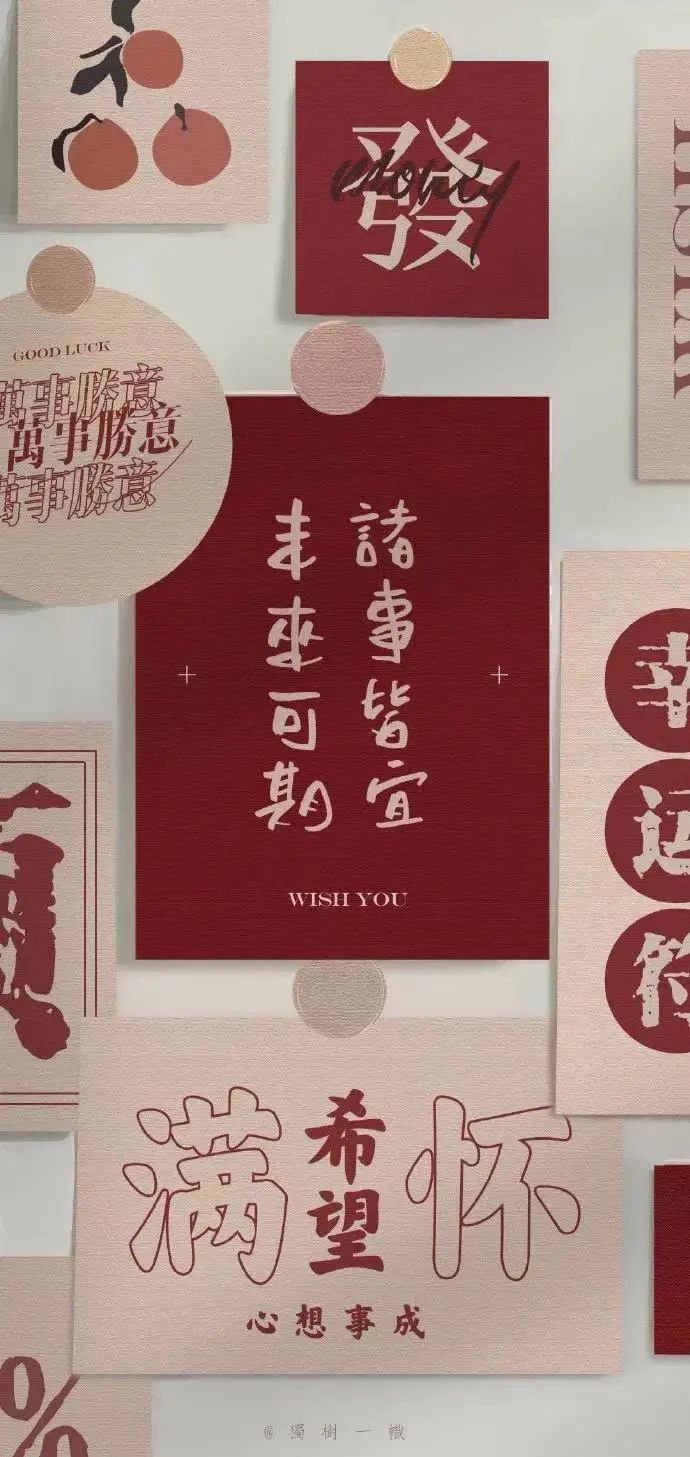 發
money
GOOD LUCK
萬事勝意
萬事勝意
萬事勝意
諸事皆宜
未來可期
WISH YOU
幸
运
符
满怀
希望
心想事成
%
@獨樹一幟